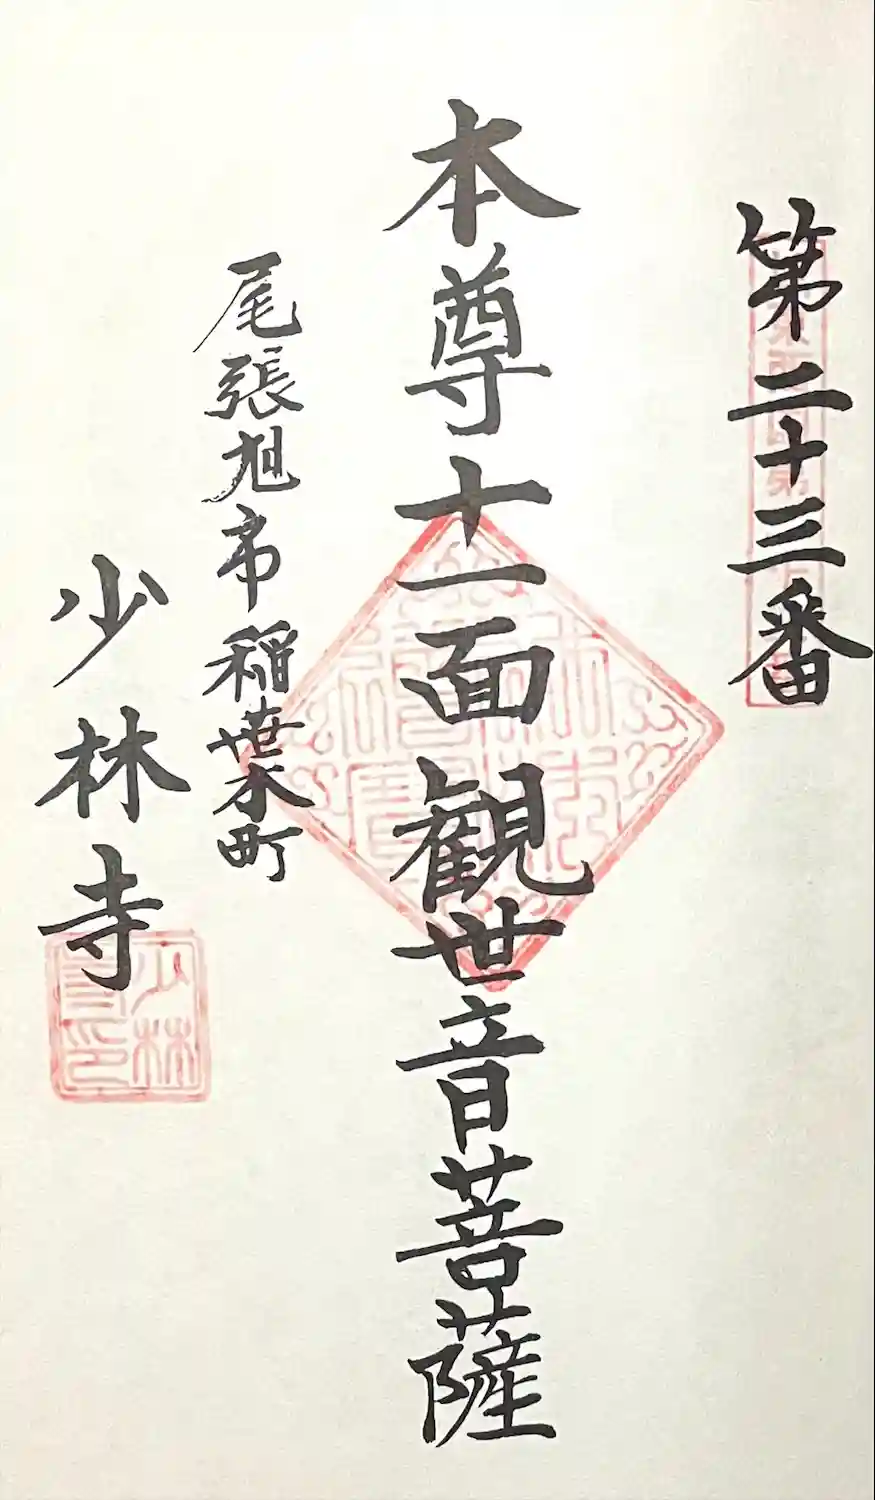 第二十三番
本尊十一面観世音菩薩
尾張旭市稲葉本町
少林寺
少林
寺印